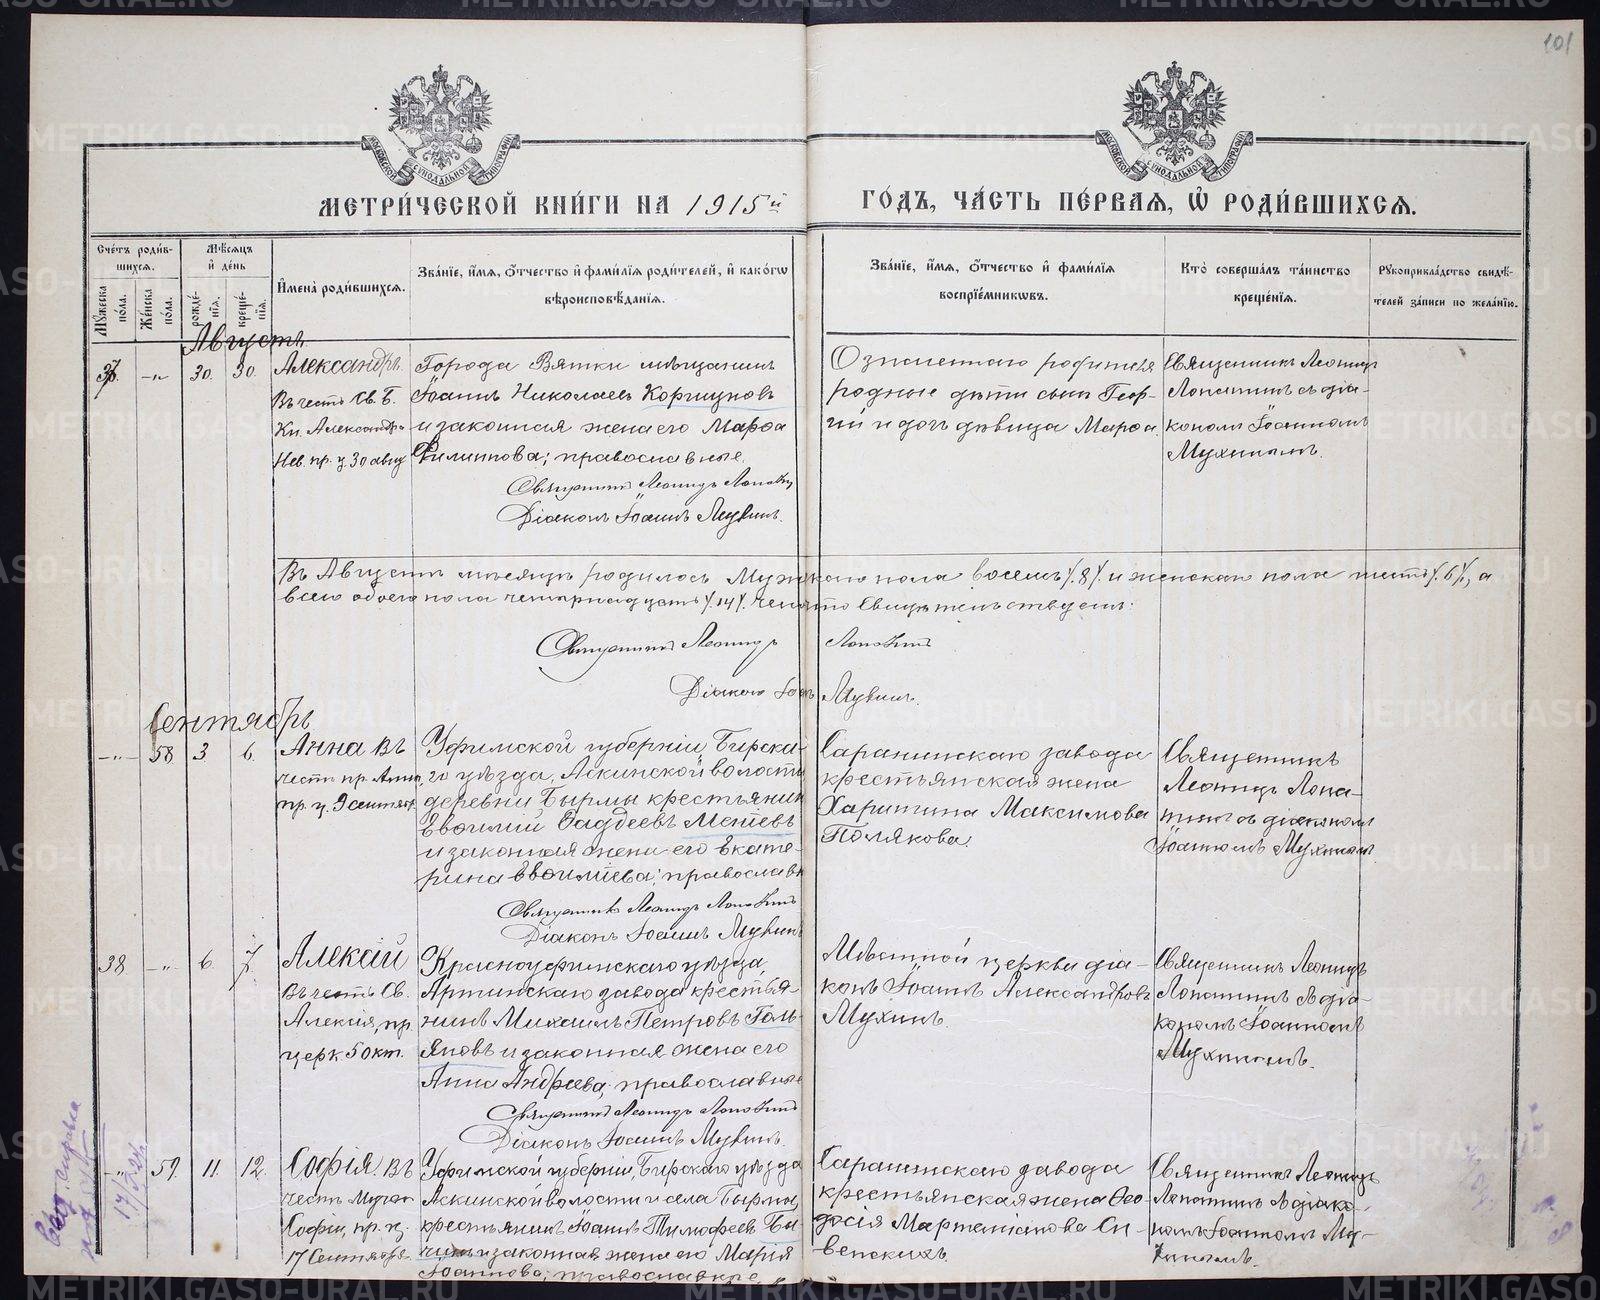 101
МЕТРИ́ЧЕСКОЙ КНИ́ГИ НА 1915й ГО́ДЪ, ЧА́СТЬ ПЕ́РВАЯ, Ѡ РОДИ́ВШИХСЯ.
Сче́тъ роди́вшихся.
Му́жеска по́ла.
Же́нска по́ла.
Мѣ́сяцъ и де́нь
рожде́нїя.
креще́нїя.
Имена̀ роди́вшихся.
Зва́нїе, и́мя, о́тчество и фами́лїя роди́телей, и како́гѡ
вѣроисповѣ́данїя.
Зва́нїе, и́мя, о́тчество и фами́лїя
воспрїе́мникѡвъ.
Кто̀ соверша́лъ та́инство
креще́нїя.
Рукоприкла́дство свидѣ́телей за́писи по жела́нїю.
Августъ
37. -„- 30. 30.
Александръ
Въ честь Св. Б.
Кн. Александра
Нев. пр. ц. 30 авгу
Города Вятки мѣщанинъ
Іоаннъ Николаевъ Коргиуновъ
и законная жена его Марѳа
Филиппова; православные.
Священникъ Леонидъ Лопатинъ
Діаконъ Іоаннъ Мухинъ.
Означеннаго родителя
родные дѣти сынъ Геор-
гій и дочь дѣвица Марѳа.
Священникъ Леонидъ
Лопатинъ съ діа-
кономъ Іоанномъ
Мухинымъ.
Въ Августѣ мѣсяцѣ родилось Мужскаго пола восемь /. 8 /. и женскаго пола шесть /. 6 /., а
всего обоего пола четырнадцать /. 14 /. Свидѣтельствуемъ:
Священникъ Леонидъ Лопатинъ
Діаконъ Іоаннъ Мухинъ.
Сентябрь
-„- 58 3 6.
Анна въ
честь пр. Анны,
пр. ц. 9 сентябр.
Уфимской губерніи, Бирска-
го уѣзда, Аскинской волости
деревни Бырмы крестьянинъ
Евѳимій Ѳаддеевъ Метевъ
и законная жена его Екате-
рина Евѳиміева; православн
Священникъ Леонидъ Лопатинъ
Діаконъ Іоаннъ Мухинъ
Саранинскаго завода
крестьянская жена
Харитина Максимова
Полякова.
Священникъ
Леонидъ Лопа-
тинъ съ діакономъ
Іоанномъ Мухинымъ.
38. -„- 6. 7.
Алексій
Въ честь Св.
Алексія, пр.
церк. 5 окт.
Красноуфимскаго уѣзда,
Артинскаго завода крестья-
нинъ Михаилъ Петровъ Голь-
яновъ и законная жена его
Анна Андреева; православные
Священникъ Леонидъ Лопатинъ
Діаконъ Іоаннъ Мухинъ.
Мѣстной церкви діа-
конъ Іоаннъ Александровъ
Мухинъ.
Священникъ Леонидъ
Лопатинъ съ діа-
кономъ Іоанномъ
Мухинымъ.
-„- 59. 11. 12.
Софія въ
честь Мучен
Софіи, пр. ц.
17 Сентября.
Уфимской губерніи, Бирскаго уѣзда
Аскинской волости и села Бырмы,
крестьянинъ Іоаннъ Тимофеевъ Бы-
чинъ и законная жена его Марія
Іоаннова; православные.
Саранинскаго завода
крестьянская жена Ѳео-
досія Мартемьянова Си-
венскихъ.
Священникъ Леонидъ
Лопатинъ съ діако-
номъ Іоанномъ Му-
хинымъ.